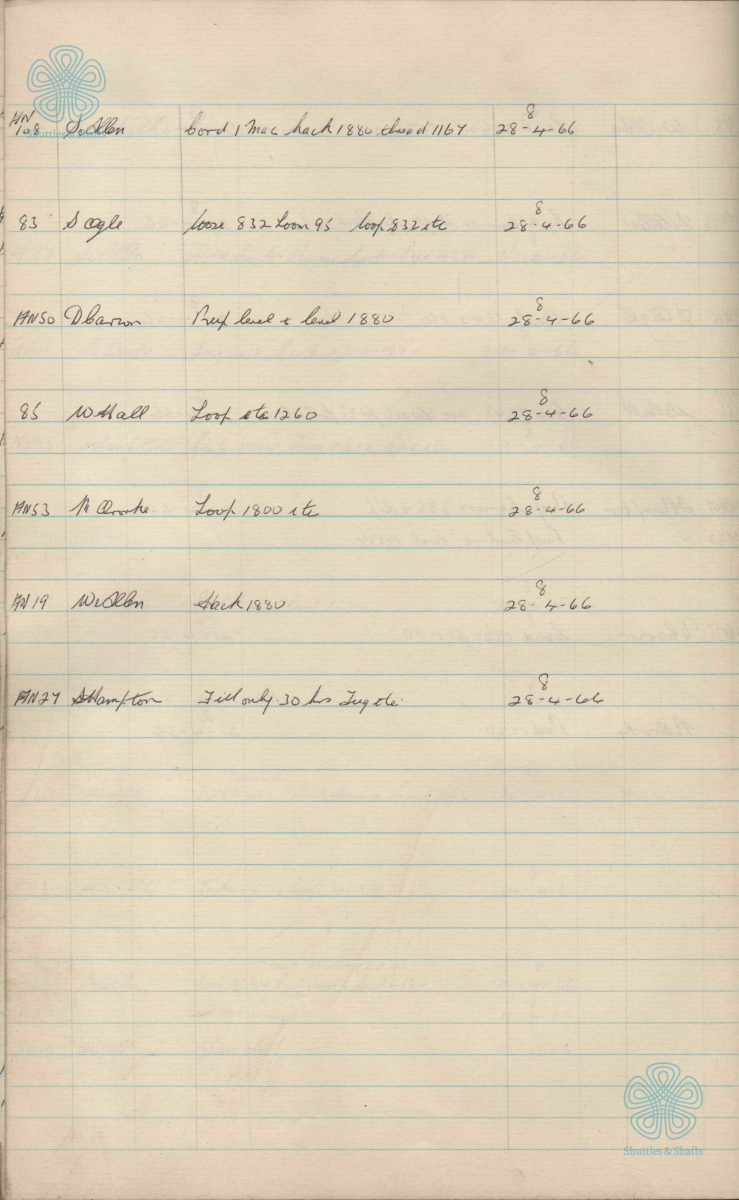 Shuttles & Shafts
AN 108 S. Allen cord 1 Mac hack 1880 thread 1167 8 28-4-66
83 S Ogle loose 832 Loom 95 loop 832 etc 8 28-4-66
AN50 D Carson Rep level & level 1880 8 28-4-66
85 W Hall Loop etc 1260 8 28-4-66
AN53 R Ororke Loop 1800 etc 8 28-4-66
AN 19 W Allen Hack 1880 8 28-4-66
AN27 Hampton Fill only 30 hrs Tug etc 8 28-4-66
Shuttles & Shafts